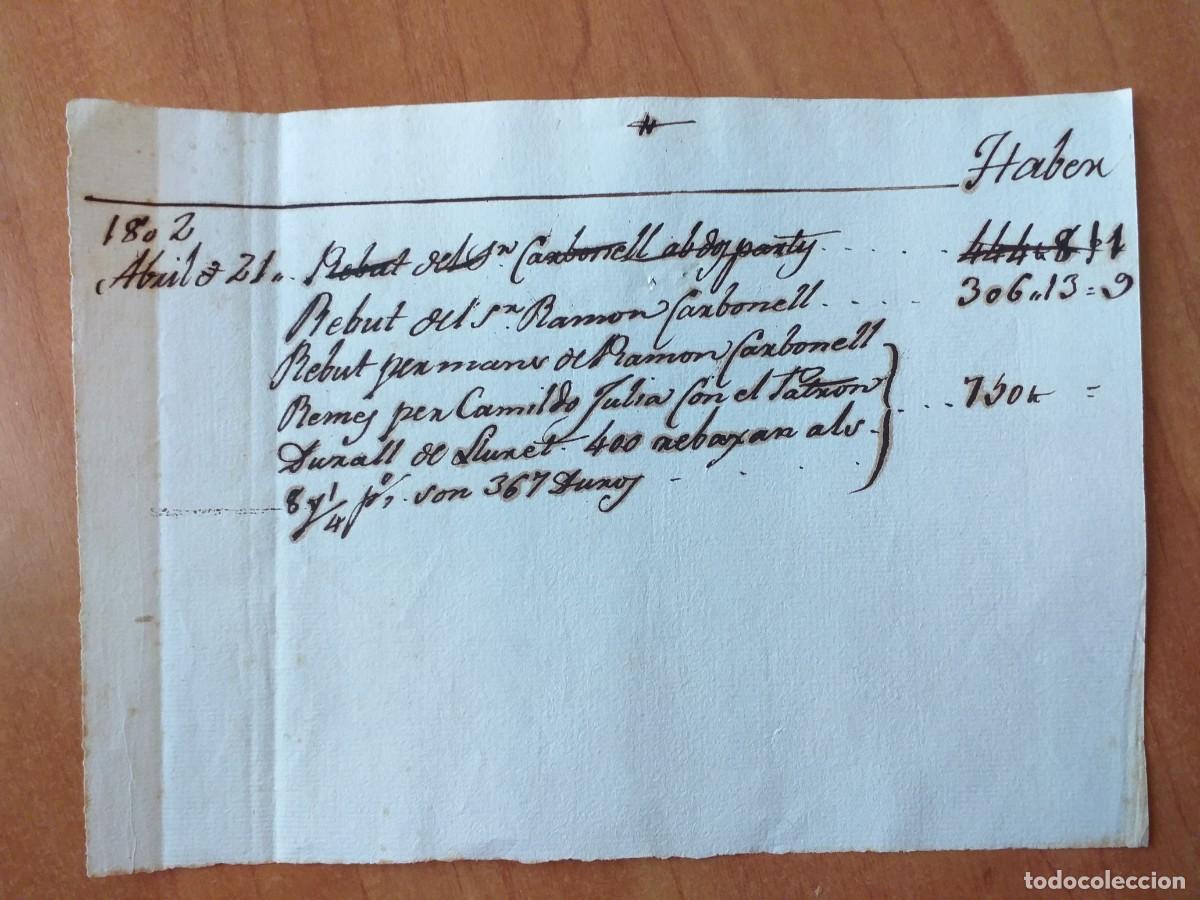 Haber
1802
Abril à 21,, Rebut del Sr Carbonell ab dos partys . . . . 444,, 8 = 1
Rebut del Sr Ramon Carbonell . . . . . 306,, 13 = 9
Rebut per mans de Ramon Carbonell
Remes per Camildo Julia Con el Patron . . . 750 tt =
Durall de Lluret 400 rebaxan als .
8 y 1/4 po, son 367 Duros - . . . .
todocoleccion